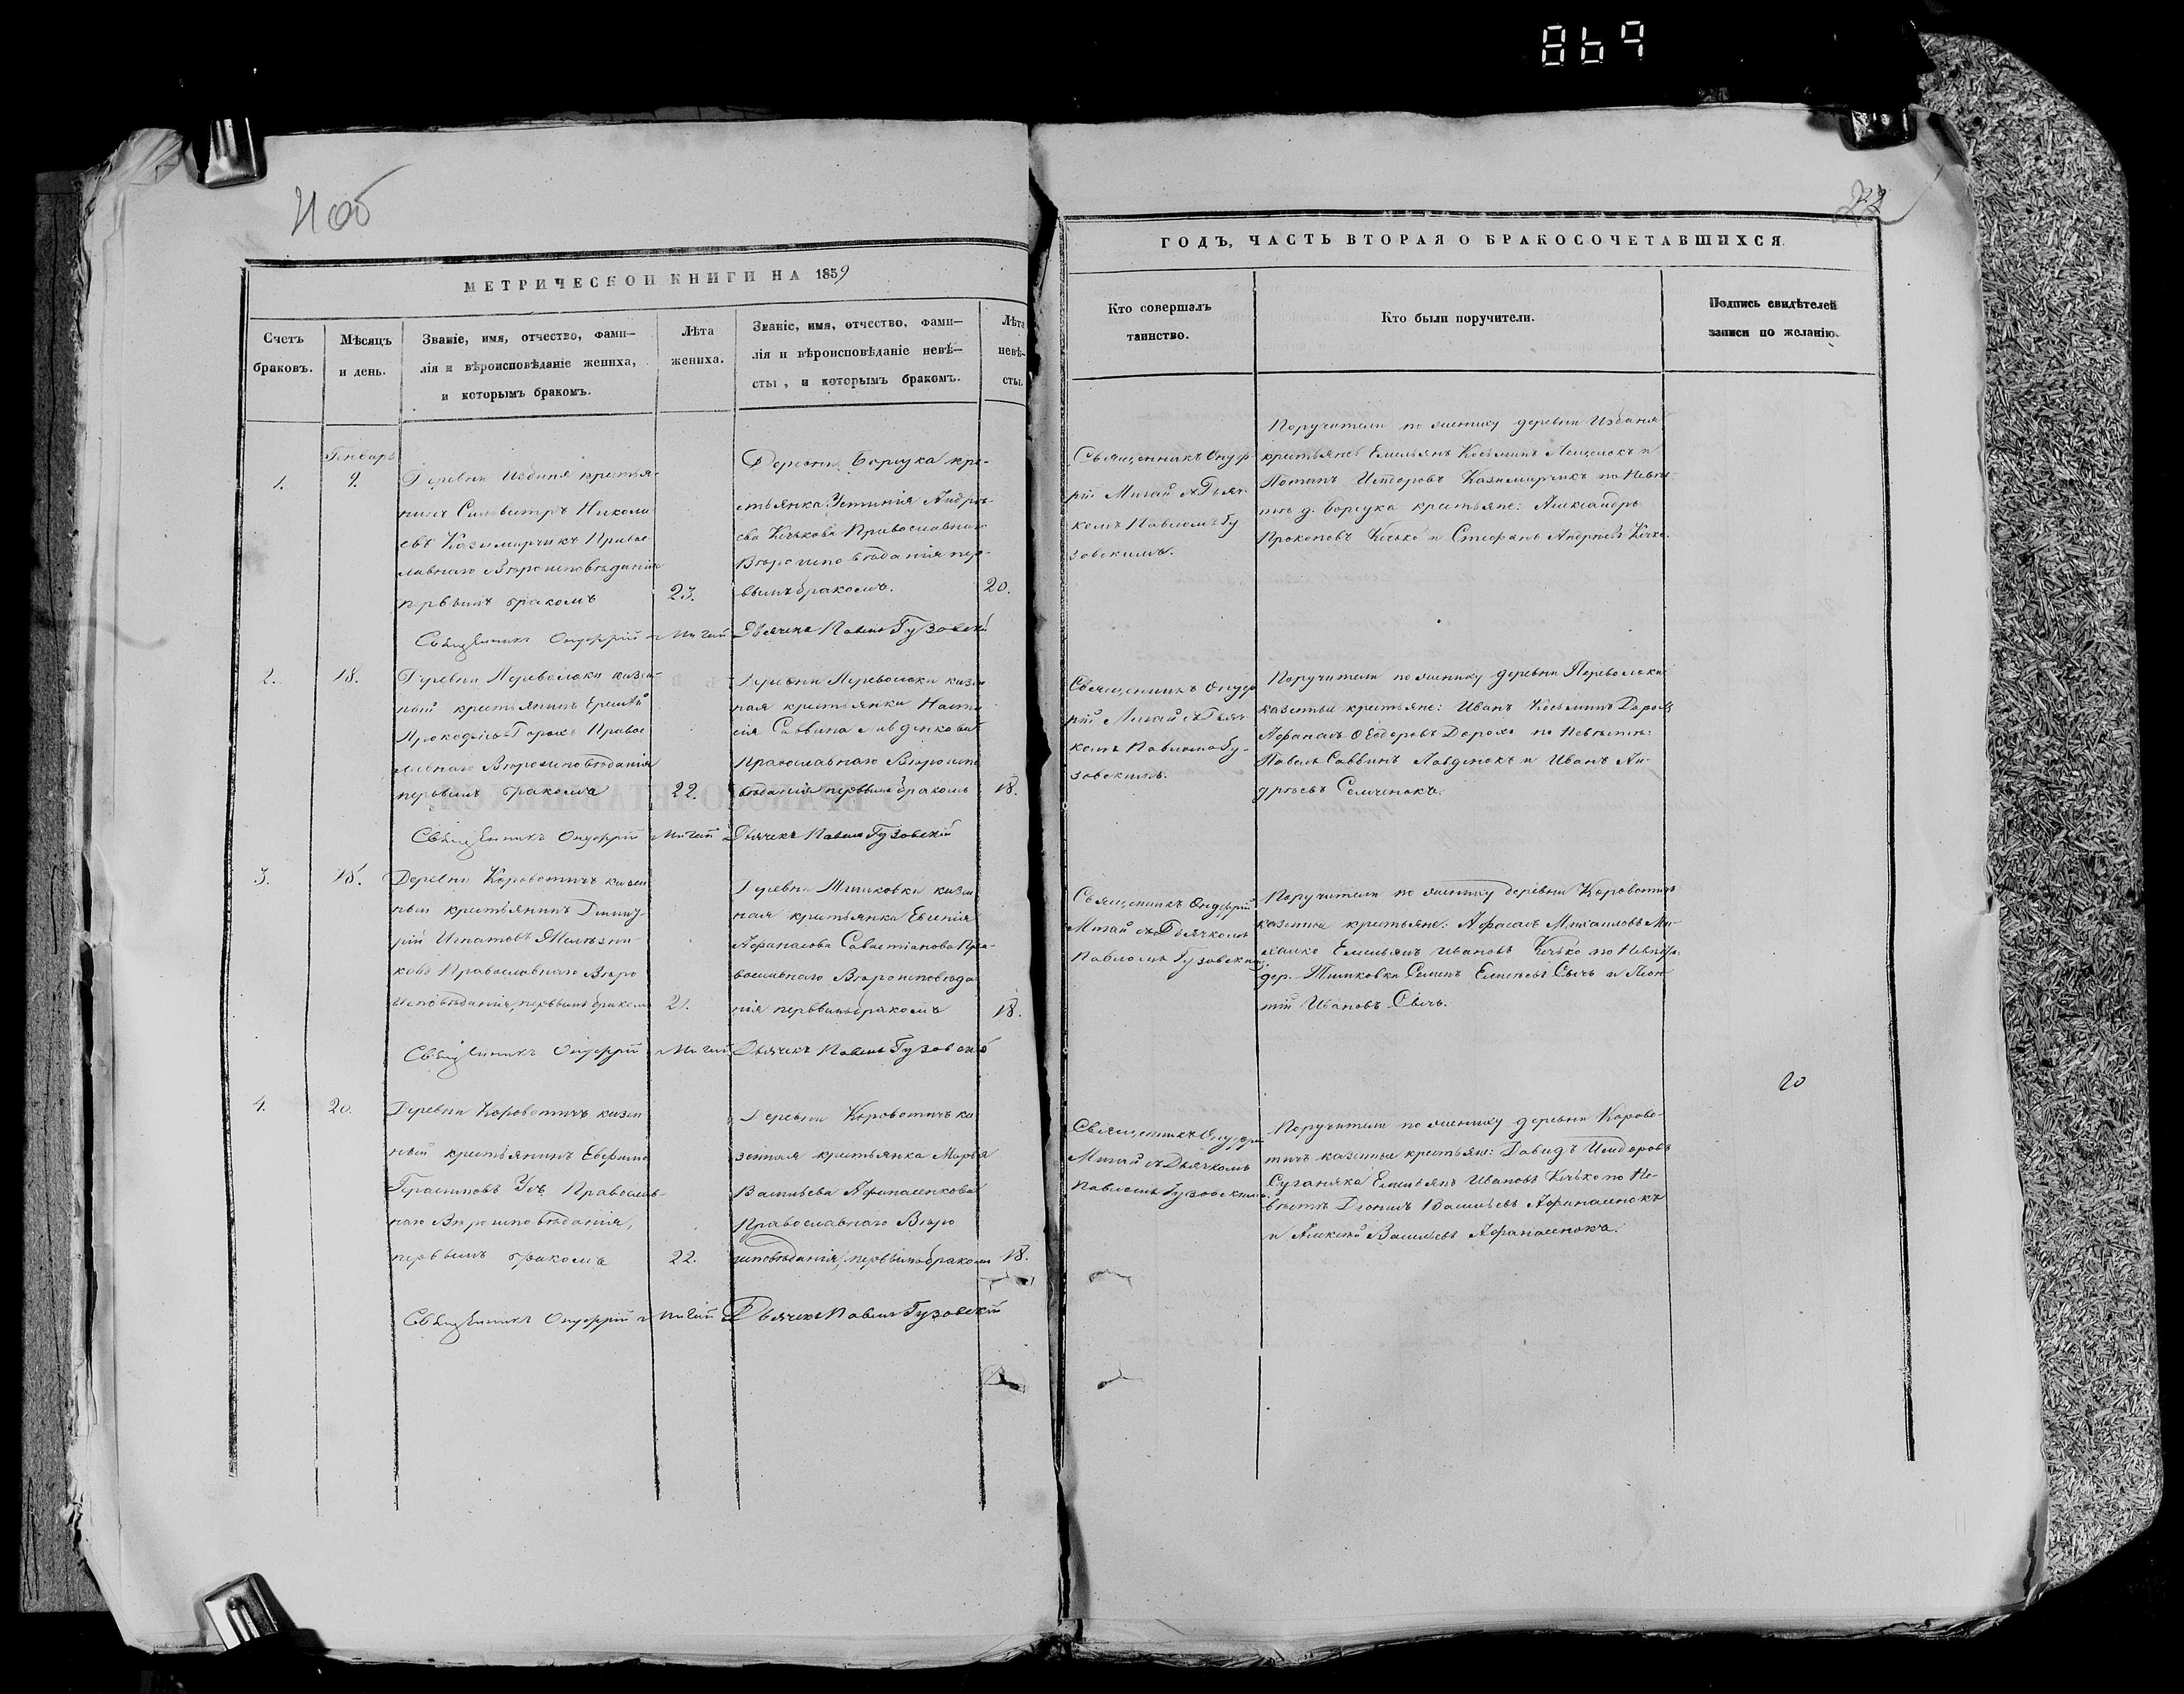 869
21 об
22
МЕТРИЧЕСКОЙ КНИГИ НА 1859
ГОДЪ, ЧАСТЬ ВТОРАЯ О БРАКОСОЧЕТАВШИХСЯ.
Счетъ
браковъ.
Мѣсяцъ
и день.
Званіе, имя, отчество, фами—
лія и вѣроисповѣданіе жениха,
и которымъ бракомъ.
Лѣта
жениха.
Званіе, имя, отчество, фами—
лія и вѣроисповѣданіе невѣ—
сты, и которымъ бракомъ.
Лѣта
невѣ-
сты.
Кто совершалъ
таинство.
Кто были поручители.
Подпись свидѣтелей
записи по желанію.
1.
Генварь
9.
Деревни Издиня крестья-
нинъ Сильвестръ Никола
евъ Казимирчикъ Право
славнаго Вѣроисповѣданія
первымъ бракомъ
23.
Деревни Борсука кре-
стьянка Устинія Андрѣе
ва Кечькова Православнаго
Вѣроисповѣданія пер-
вымъ бракомъ.
20.
Священникъ Онуф
рій Мигай съ Дьяч
комъ Павломъ Гу
зовскимъ.
Поручители по жениху деревни Издиня
крестьяне Емельянъ Косьминъ Лещенокъ и
Потапъ Исидоровъ Казимирчикъ по Невѣ
стѣ д. Борсука крестьяне: Александръ
Прокоповъ Кечько и Стефанъ Андреевъ Кечко.
Священникъ Онуфрій Мигай Дьячекъ Павелъ Гузовскій
2.
18.
Деревни Переволоки казен-
ный крестьянинъ Еремѣй
Прокофьевъ Дорохъ Право
славнаго Вѣроисповѣданія
первымъ бракомъ
22.
Деревни Переволоки казен
ная крестьянка Наста
сія Саввина Лавденкова
Православнаго Вѣроиспо
вѣданія первымъ бракомъ
18.
Священникъ Онуф
рій Мигай съ Дьяч
комъ Павломъ Гу-
зовскимъ.
Поручители по жениху деревни Переволоки
казенные крестьяне: Иванъ Косьминъ Дорохъ
Афанасъ Ѳеодоровъ Дорохъ по Невѣстѣ:
Павелъ Саввинъ Лавденокъ и Иванъ Ан-
дрѣевъ Семченокъ.
Священникъ Онуфрій Мигай Дьячекъ Павелъ Гузовскій
3.
18.
Деревни Коровотичъ казен
ный крестьянинъ Димит-
рій Игнатовъ
ковъ Православнаго Вѣро
исповѣданія, первымъ бракомъ
21.
Деревни Тимковки казен
ная крестьянка Евгенія
Афанасова Савастіанова Пра-
вославнаго Вѣроисповѣда
нія первымъ бракомъ
18.
Священникъ Онуфрій
Мигай съ Дьячкомъ
Павломъ Гузовскимъ
Поручители по жениху деревни Коровотичъ
казенные крестьяне: Афанасъ Михаиловъ Ми-
халко Емельянъ Ивановъ Кечько по Невѣстѣ:
дер. Тимковки Семенъ Сычъ и Леон
тій Ивановъ Сычъ.
Священникъ Онуфрій Мигай Дьячекъ Павелъ Гузовскій
20
4.
20.
Деревни Коровотичъ казен
ный крестьянинъ Евфимъ
Герасимовъ Православ-
наго Вѣроисповѣданія,
первымъ бракомъ
22.
Деревни Коровотичъ ка
зенная крестьянка Марья
Васильева Афанасенкова
Православнаго Вѣро
исповѣданія, первымъ бракомъ
18.
Священникъ Онуфрій
Мигай съ Дьячкомъ
Павломъ Гузовскимъ.
Поручители по жениху деревни Корово-
тичъ казенные крестьяне: Давидъ Исидоровъ
Суганяка Емельянъ Ивановъ Кечько по Не-
вѣстѣ Васильевъ Афанасенокъ
и Алексѣй Васильевъ Афанасенокъ.
Священникъ Онуфрій Мигай Дьячекъ Павелъ Гузовскій